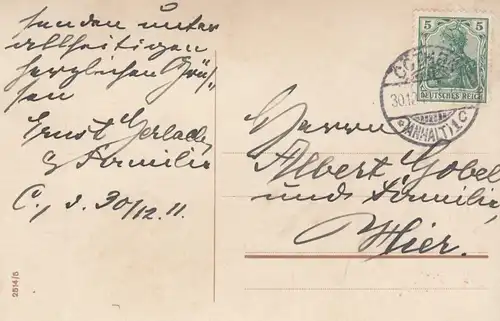 senden unter
allseitigen
herzlichen Grüs-
sen
Ernst Gerlach
& Familie
C., d. 30/12. 11.
2514/5
5 5
DEUTSCHES REICH
CÖTHEN
30.12
* (ANHALT) 1 C
Herrn
Albert Göbel
und Familie,
Hier.